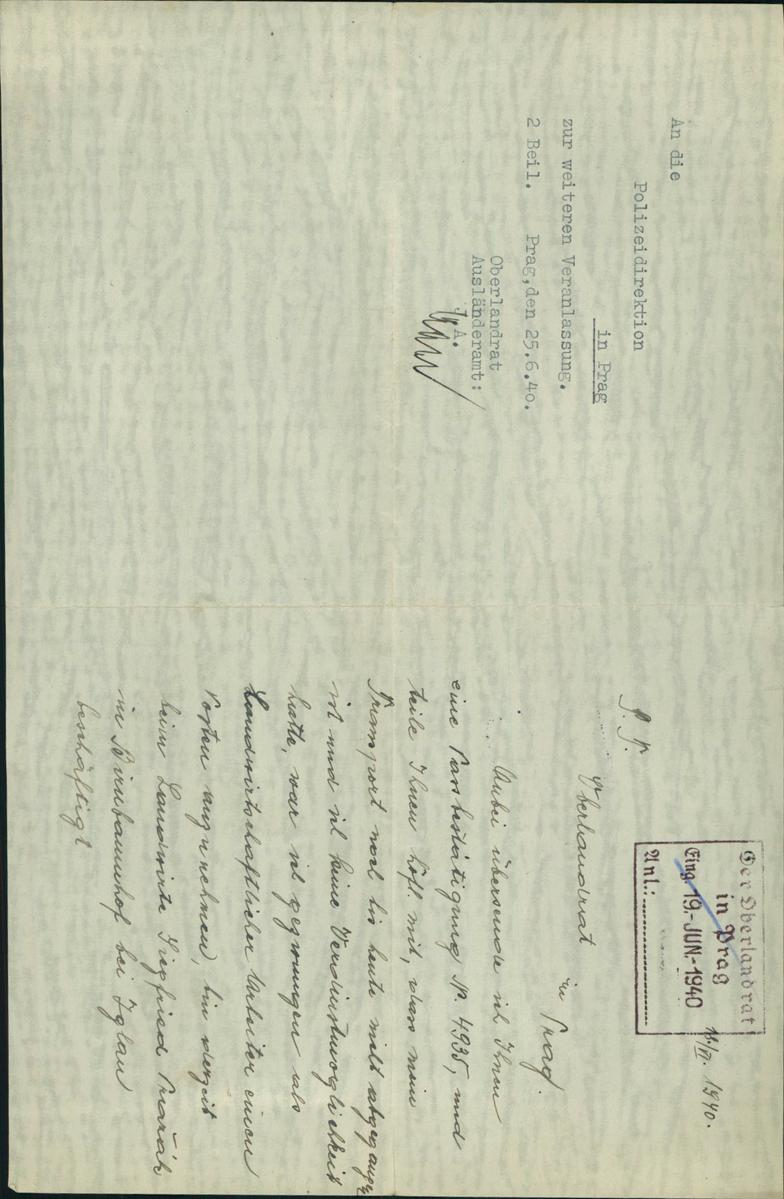 An die
Polizeidirektion
in Prag
zur weiteren Veranlassung.
2 Beil. Prag, den 25.6.40.
Oberlandrat
Ausländeramt:
J.A.
Der Oberlandrat
in Prag
Eing. 19.-JUN.-1940
Anl.:
/VI. 1940.
P. T.
Oberlandrat
in Prag.
Anbei übersende ich Ihnen
eine Passbestätigung No. 4935, und
teile Ihnen höfl. mit, dass mein
Transport noch bis heute nicht abgegangen
ist und ich keine Verdienstmöglichkeit
hatte, war ich gezwungen als
Landwirtschaftlicher Arbeiter einen
Posten anzunehmen, bin derzeit
beim Landwirte Siegfried
im Birnbaumhof bei Iglau
beschäftigt